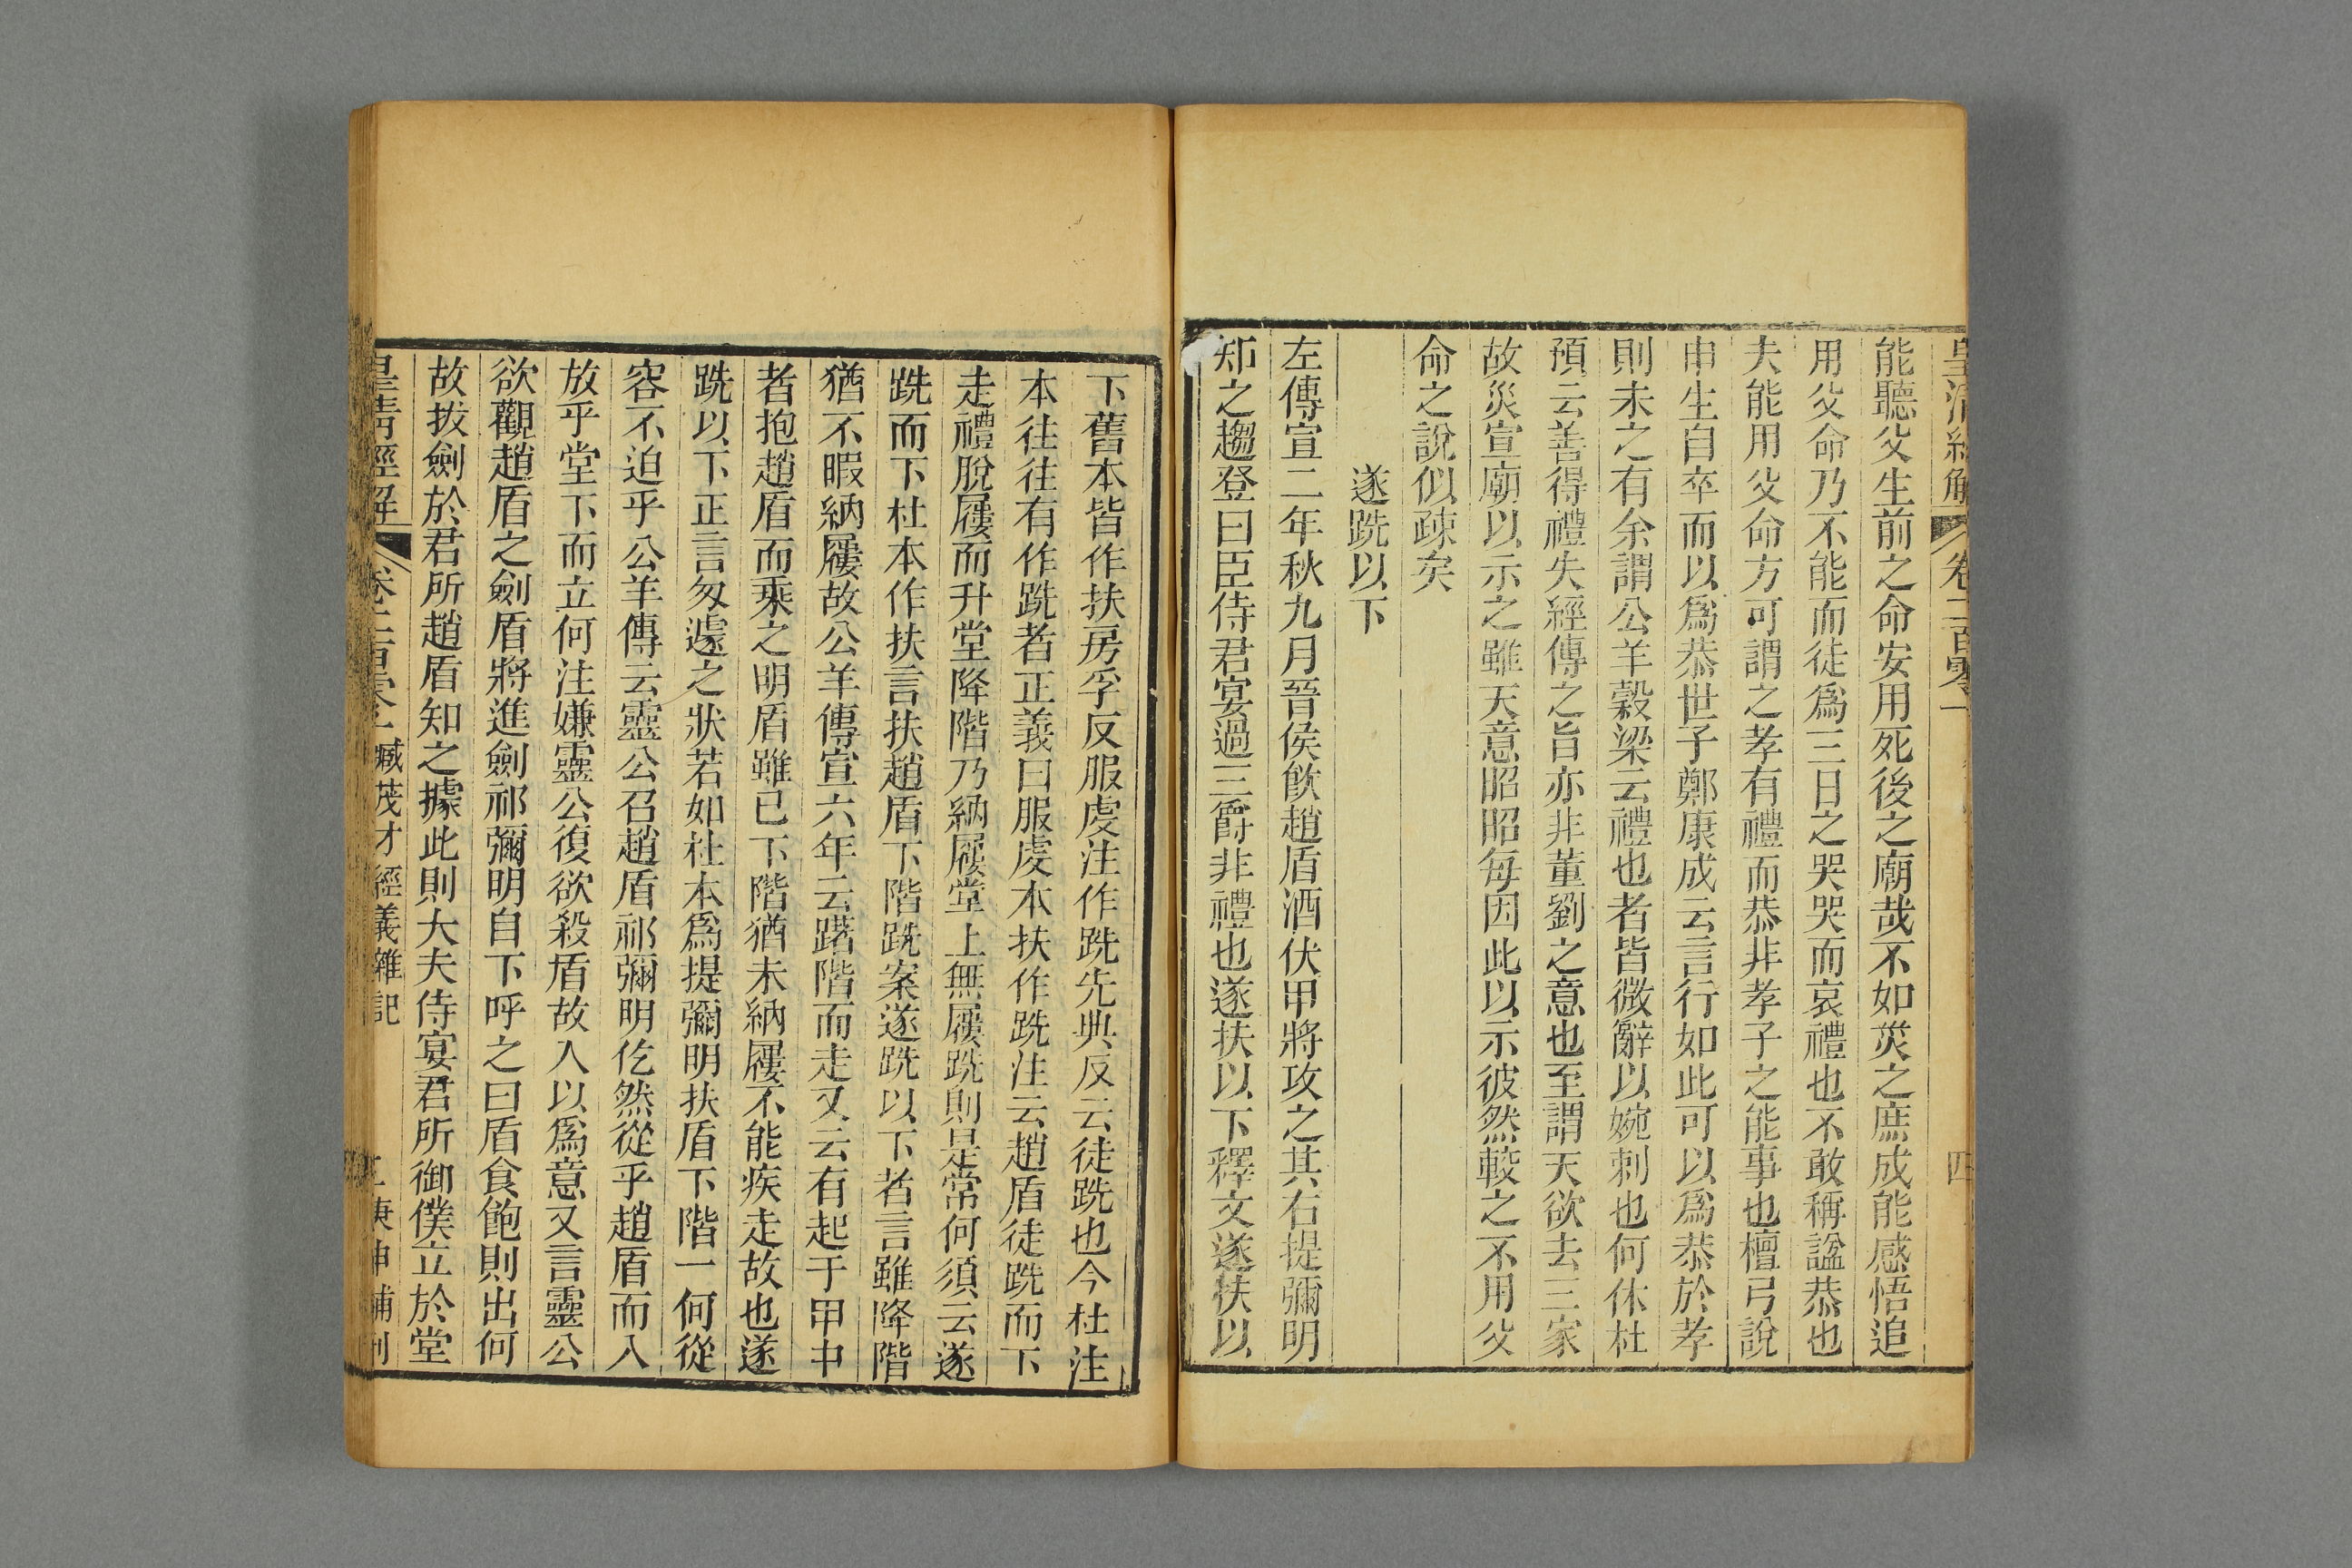 皇清經解 卷二百零一 四
能聽父生前之命安用死後之廟哉不如災之庶成能感悟追
用父命乃不能而徒爲三日之哭哭而哀禮也不敢稱諡恭也
夫能用父命方可謂之孝有禮而恭非孝子之能事也檀弓說
申生自卒而以爲恭世子鄭康成云言行如此可以爲恭於孝
則未之有余謂公羊穀梁云禮也者皆微辭以婉刺也何休杜
預云善得禮失經傳之旨亦非董劉之意也至謂天欲去三家
故災宣廟以示之雖天意昭昭每因此以示彼然較之不用父
命之說似疎矣
遂跣以下
左傳宣二年秋九月晉侯飲趙盾酒伏甲將攻之其右提彌明
知之趨登曰臣侍君宴過三爵非禮也遂扶以下釋文遂扶以
下舊本皆作扶房孚反服虔注作跣先典反云徒跣也今杜注
本往往有作跣者正義曰服虔本扶作跣注云趙盾徒跣而下
走禮脫屨而升堂降階乃納屨堂上無屨跣則是常何須云遂
跣而下杜本作扶言扶趙盾下階跣案遂跣以下者言雖降階
猶不暇納屨故公羊傳宣六年云躇階而走又云有起于甲中
者抱趙盾而乘之明盾雖已下階猶未納屨不能疾走故也遂
跣以下正言匆遽之狀若如杜本爲提彌明扶盾下階一何從
容不迫乎公羊傳云靈公召趙盾祁彌明仡然從乎趙盾而入
放乎堂下而立何注嫌靈公復欲殺盾故入以爲意又言靈公
欲觀趙盾之劍盾將進劍祁彌明自下呼之曰盾食飽則出何
故拔劍於君所趙盾知之據此則大夫侍宴君所御僕立於堂
皇清經解 卷二百零一 臧茂才經義雜記 庚申補刊